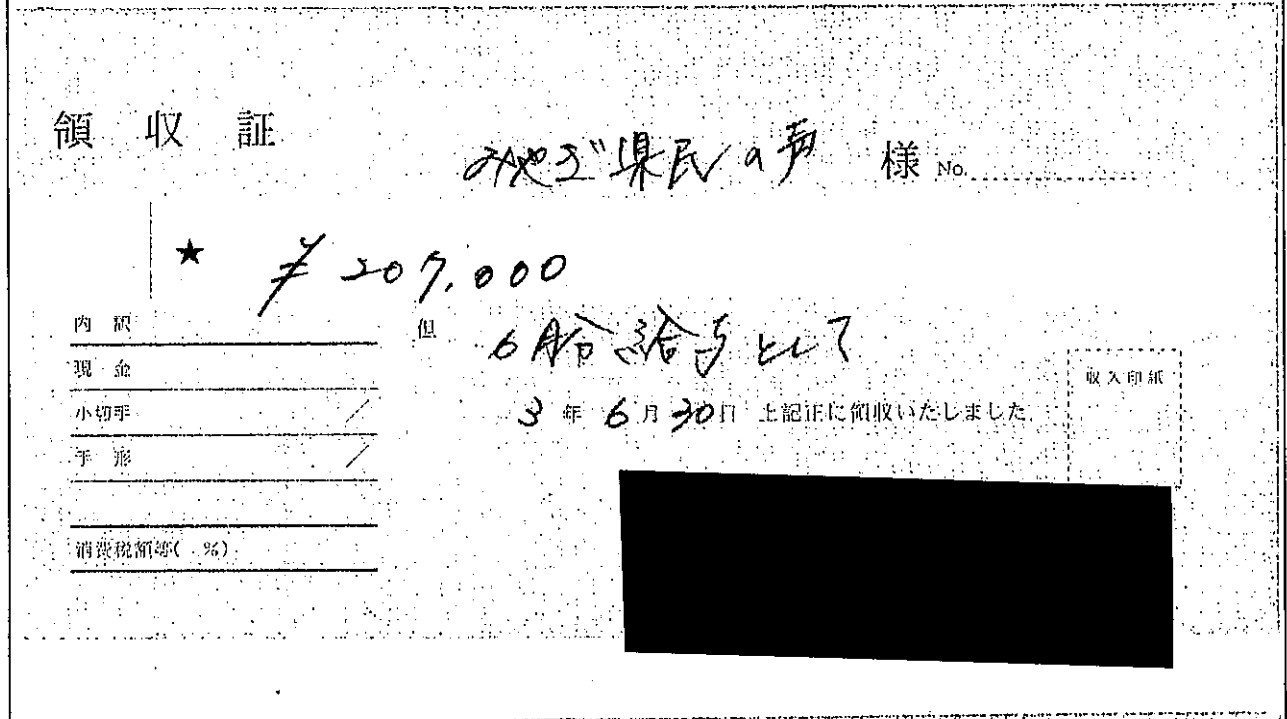 領収証
みやぎ県民の声 様 No.
★ ¥207,000
但 6月分給与として
3年6月30日 上記正に領収いたしました
内訳
現金
小切手 /
手形 /
消費税額等( %)
収入印紙